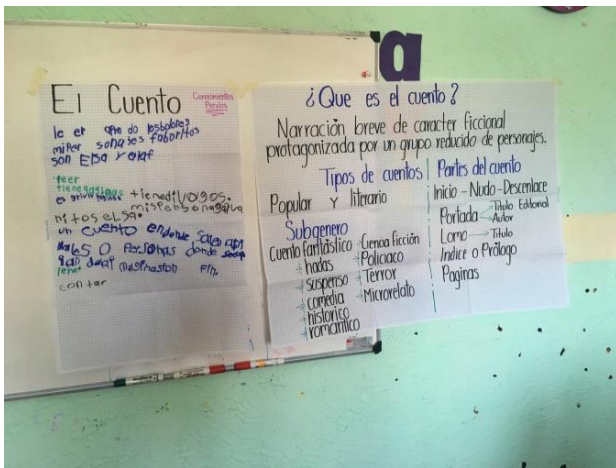 a
El Cuento
Conocimientos
Previos
le er
mis per sonajes faboritos
son Elsa y olaf
leer
tiene
tienedivogos.
un cuento endonde salen
O Personas donde
Fin.
lener
contar
¿Que es el cuento?
Narración breve de caracter ficcional
protagonizada por un grupo reducido de personajes.
Tipos de cuentos
Popular y literario
Subgenero
Cuento fantástico
hadas
suspenso
comedia
histórico
romántico
Ciencia ficción
Policiaco
Terror
Microrelato
Partes del cuento
Inicio - Nudo - Descenlace
Portada → Titulo Editorial
Autor
Lomo → Titulo
Indice o Prólogo
Paginas